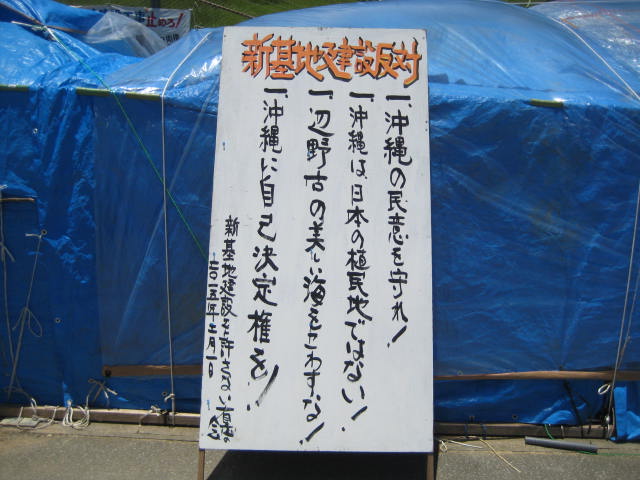 止めろ!
新基地建設反対
一、沖縄の民意を守れ!
一、沖縄は、日本の植民地ではない!
一、辺野古の美しい海をこわすな!
一、沖縄に自己決定権を!
新基地建設を許さない
二〇一五年二月一日